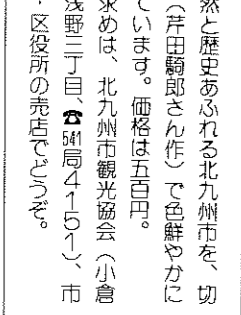 然と歴史あふれる北九州市を、切
(芹田騎郎さん作)で色鮮やかに
ています。価格は五百円。
求めは、北九州市観光協会(小倉
浅野三丁目、☎541局4151)、市
・区役所の売店でどうぞ。